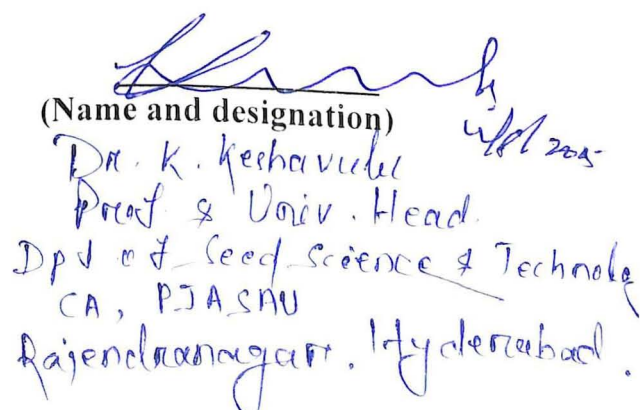 (Name and designation)
Dr. K. Keshavulu
Prof & Univ. Head
Dpt of Seed Science & Technology
CA, PJTSAU
Rajendranagar, Hyderabad.